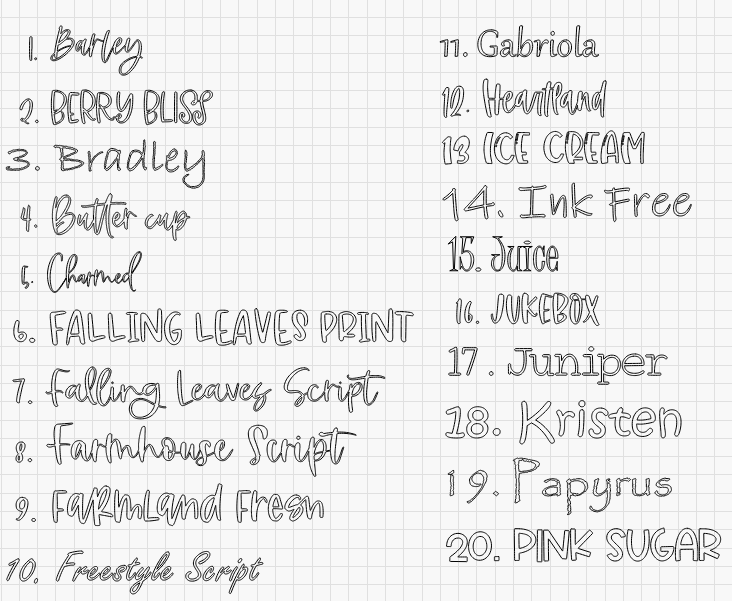 1. Barley
2. BERRY BLISS
3. Bradley
4. Butter cup
5. Charmed
6. FALLING LEAVES PRINT
7. Falling Leaves Script
8. Farmhouse Script
9. FaRmLand FResh
10. Freestyle Script
11. Gabriola
12. Heartland
13 ICE CREAM
14. Ink Free
15. Juice
16. JUKEBOX
17. Juniper
18. Kristen
19. Papyrus
20. PINK SUGAR